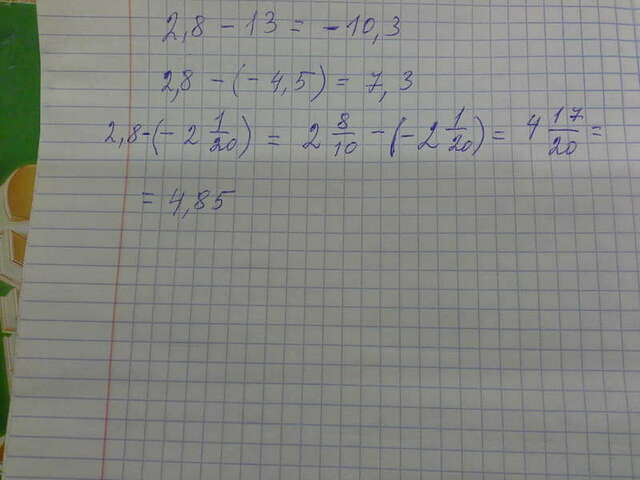 2,8 - 13 = -10,3
2,8 - (-4,5) = 7,3
2,8-(-2 1/20) = 2 8/10 -(-2 1/20) = 4 17/20 =
= 4,85